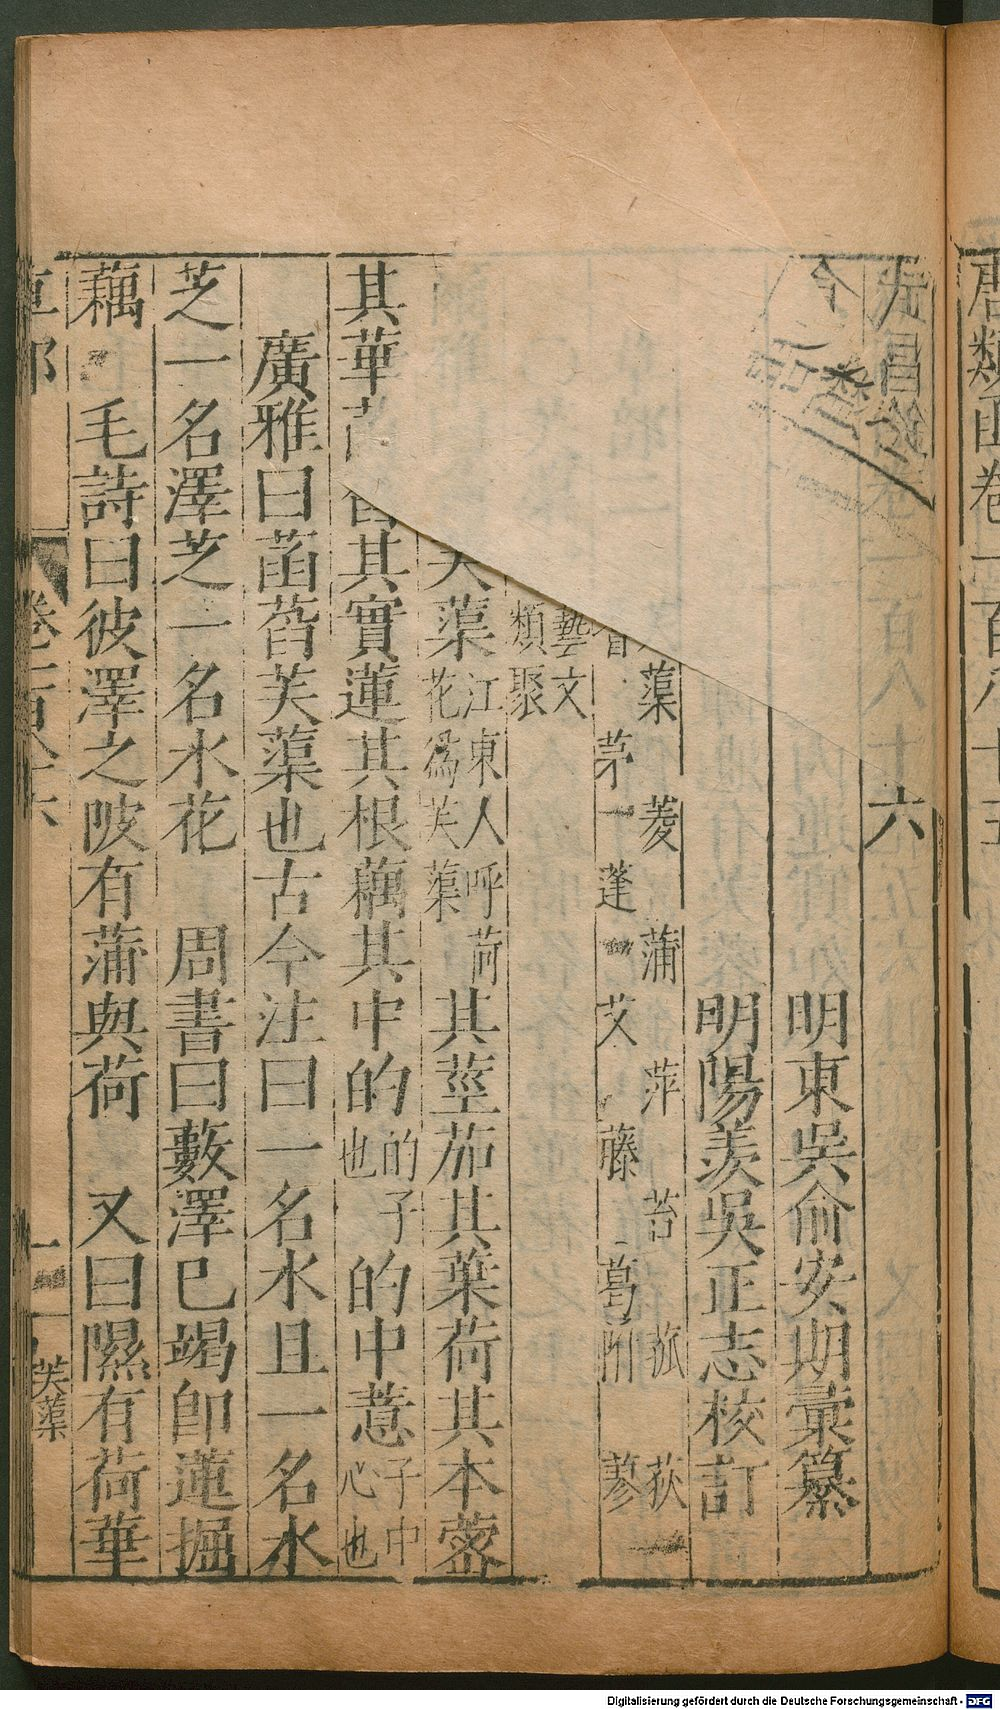 唐類函卷一百八十五
六
明東吳俞安期彙纂
明陽羨吳正志校訂
蕖 菱 蒲 萍 苔 菰 荻
茅一 蓬 艾 藤 葛 蓼
藝文
類聚
芙蕖
江東人呼荷
花為芙蕖
其莖茄其葉荷其本蔤
其華
其實蓮其根藕其中的
的子
也
的中薏
子中
心也
廣雅曰菡萏芙蕖也古今注曰一名水且一名水
芝一名澤芝一名水花 周書曰藪澤已竭即蓮掘
藕 毛詩曰彼澤之陂有蒲與荷 又曰隰有荷華
芙蕖
Digitalisierung gefördert durch die Deutsche Forschungsgemeinschaft - DFG